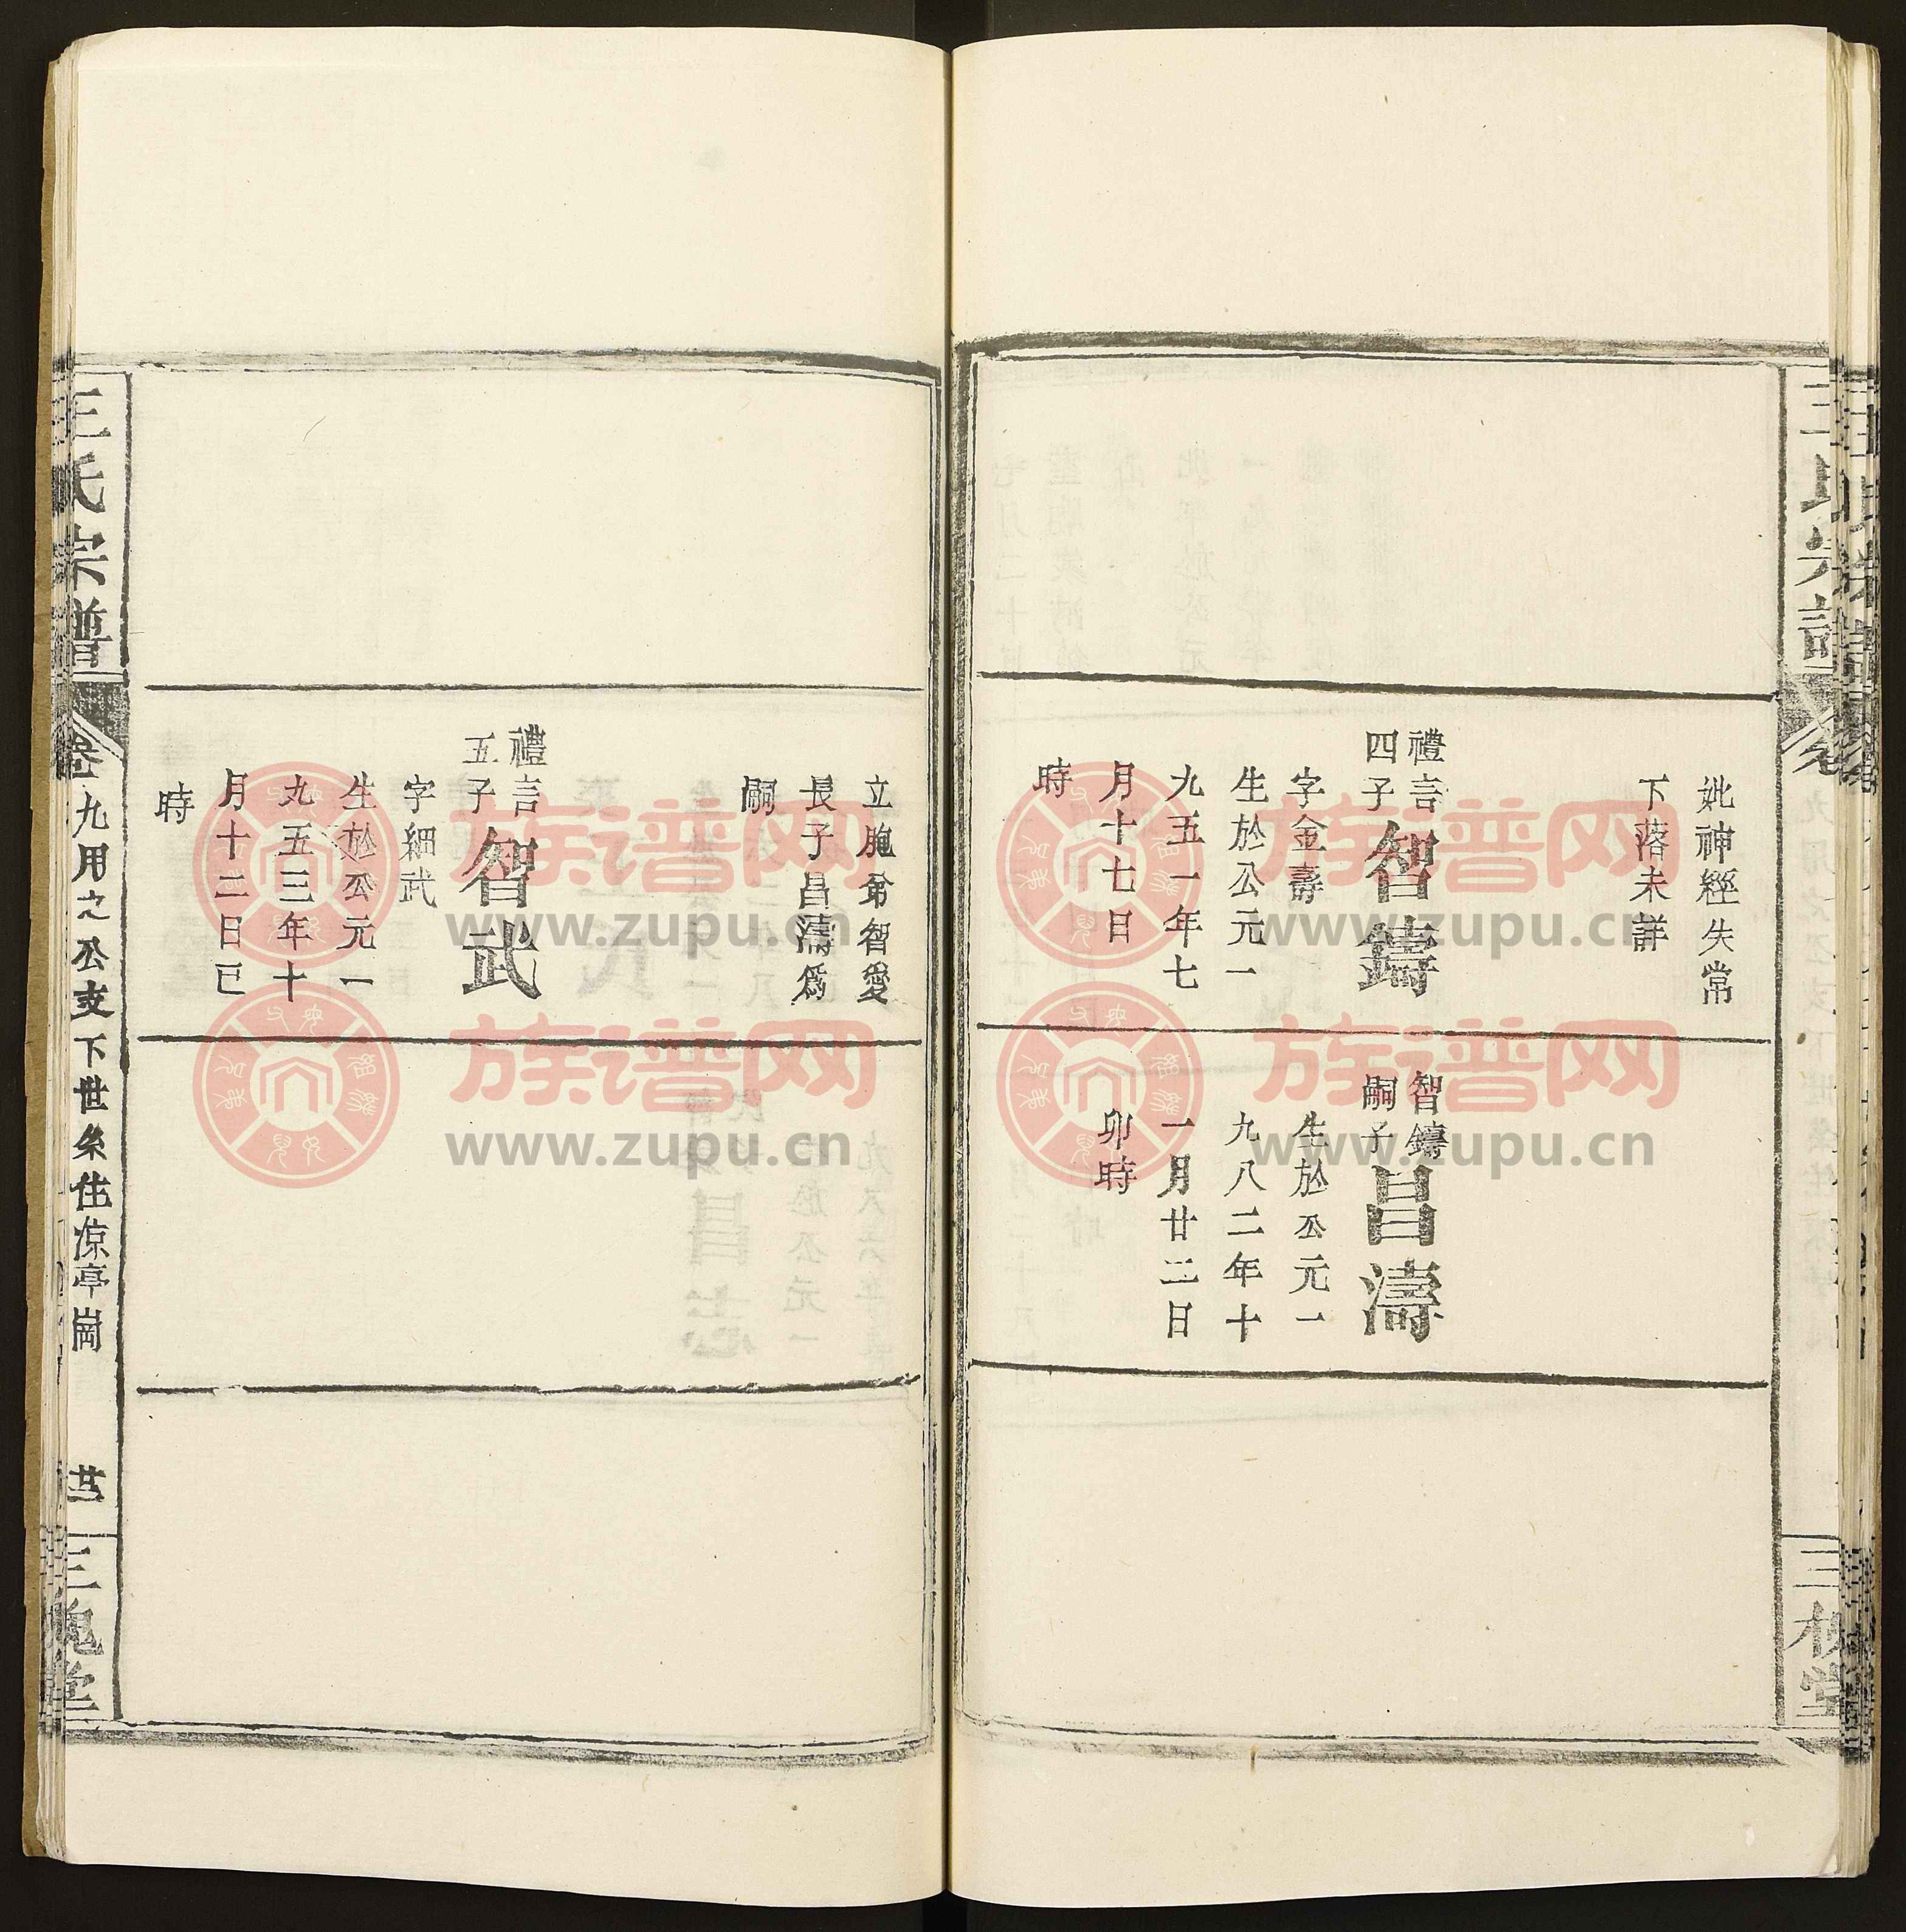 妣神經失常
下落未詳
禮言
四子
智鑄
字金壽
生於公元一
九五一年七
月十七日
時
智鑄
嗣子
昌濤
生於公元一
九八二年十
一月廿二日
卯時
三槐堂
立胞爷智愛
長子昌濤爲
嗣
禮言
五子
智武
字細武
生於公元一
九五三年十
月十二日巳
時
王氏宗譜
九用之公支下世糸住凉亭崗
三槐堂
族谱网
www.zupu.cn
族谱网
www.zupu.cn
族谱网
www.zupu.cn
族谱网
www.zupu.cn